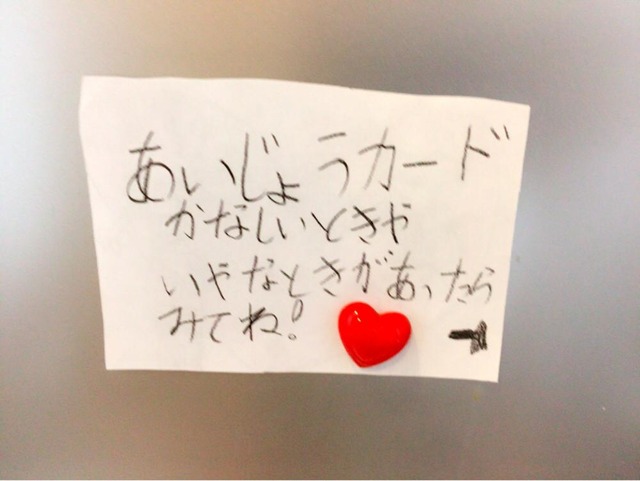 あいじょうカード
かなしいときや
いやなときがあったら
みてね!